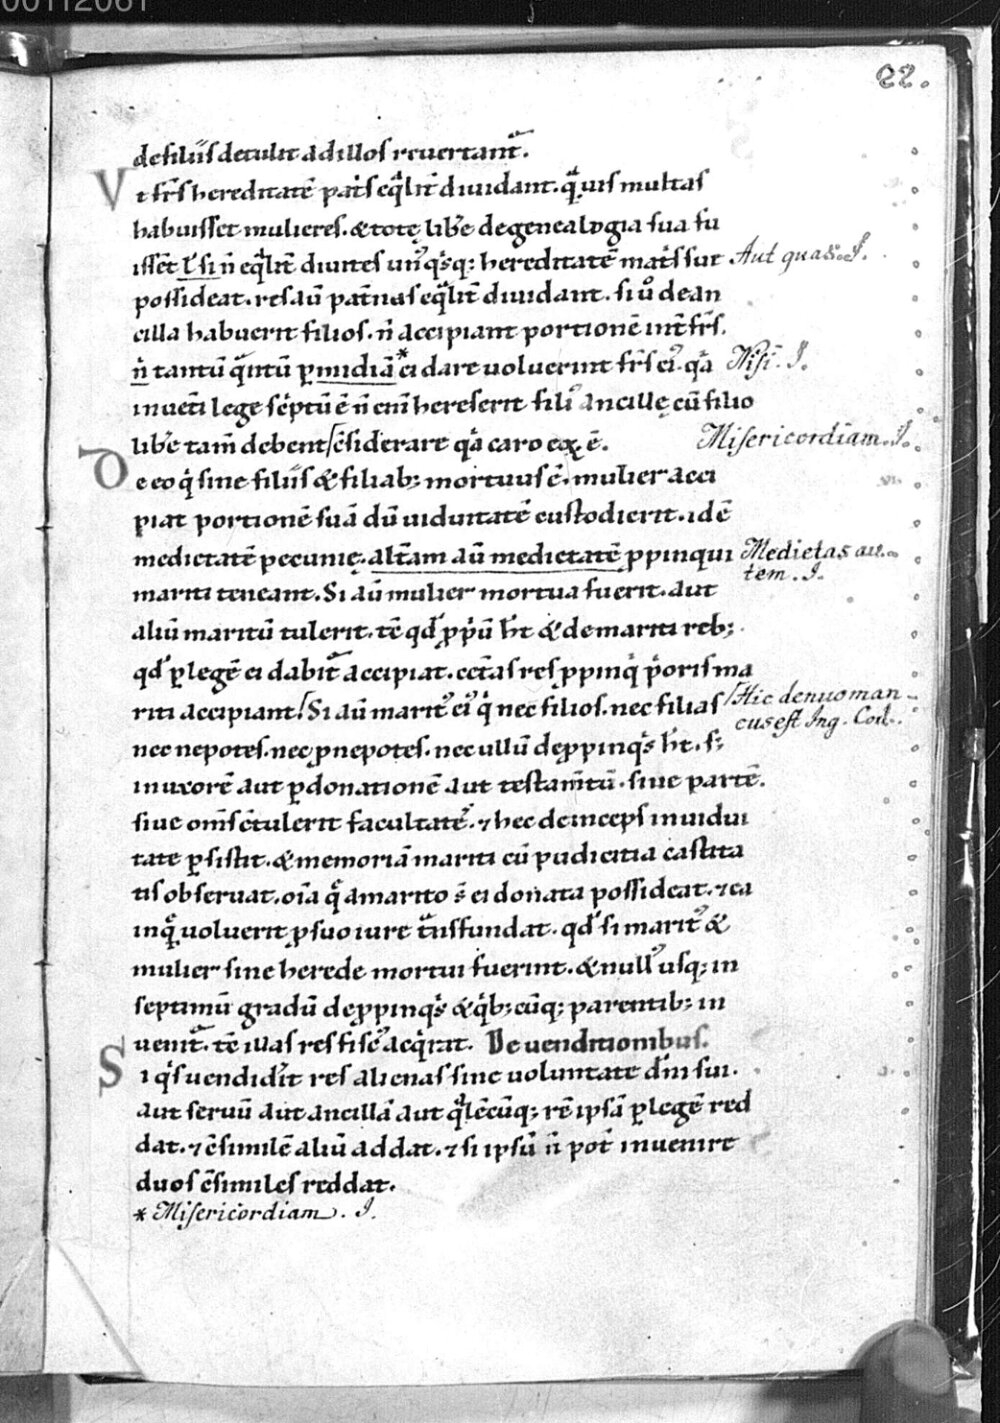 00112061
22.
de filiis detulit ad illos reuertant᷑.
Vt fr̄s hereditatē pat̄s eq̄lit̄ diuidant. q̄uis multas
habuisset mulieres. & totę lib̄e de genealogia sua fu
issēt ł si n̄ eq̄lit̄ diuites un᷒q̄sq; hereditatē mat̄s suę Aut quas. I.
possideat. res aū pat̄nas eq̄lit̄ diuidant. si ū de an
cilla habuerit filios. n̄ accipiant portionē int̄ fr̄s.
n̄ tantū q̄ntū p̱ inidiā* ei dare uoluerint fr̄s ei᷒. q̄a Nisi. I.
in ueti lege sc̄ptū ē n̄ eni᷒ heres erit fili᷒ ancillę cū filio
lib̄e tam̄ debent c̄siderare q̄a caro ei᷒ ē. Misericordiam. I.
De eo q̄ sine filiis & filiab; mortuus ē. mulier acci
piat portionē suā dū uiduitatē custodierit. idē
medietatē pecunię. alt̄am aū medietatē ꝓpinqui Medietas au-
tem. I.
mariti teneant. Si aū mulier mortua fuerit. aut
aliū maritū tulerit. tē qd̄ ꝓp̄ū h̄t & de mariti reb;
qd̄ ꝑ legē ei dabit᷑ accipiat. cet̄as res ꝓpinq̄ p̄oris ma
riti accipiant. Si aū marit᷒ ei᷒ q̄ nec filios. nec filias Hic denuo man-
cus est Ing. Cod.
nec nepotes. nec ꝓnepotes. nec ullū de ꝓpinq̄s h̄t. s;
in uxorē aut ꝑ donationē aut testam̄tū. siue partē.
siue om̄s c̄tulerit facultate᷒. ⁊ hec deinceps in uidui
tate ꝑsistit. & memoriā mariti cū pudicitia castita
tis obseruat. oīa q̄ a marito s̄ ei donata possideat. ⁊ ea
in q̄ uoluerit ꝓ suo iure t̄nsfundat. qd̄ si marit᷒ &
mulier sine herede mortui fuerint. & null᷒ usq; in
septimū gradū de ꝓpinq̄s & q̄b; cūq; parentib; in
uenit᷑. tē illas res fisc᷒ acq̄rat. De uenditionibus.
Si q̄s uendid̄it res alienas sine uoluntate dn̄i sui.
aut seruū aut ancillā aut q̄lēcūq; rē ipsā ꝑ legē red
dat. ⁊ c̄similē aliū addat. ⁊ si ipsū n̄ pot̄ inuenire
duos c̄similes reddat.
* Misericordiam. I.